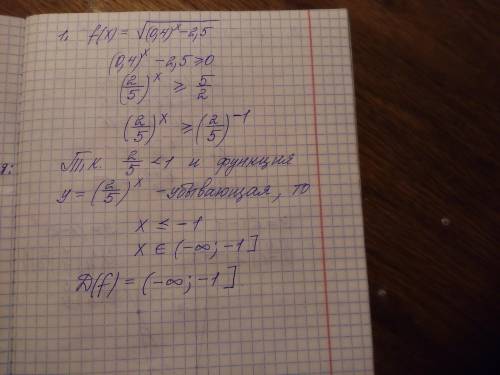 1. f(x) = √((0,4)^x - 2,5)
(0,4)^x - 2,5 ≥ 0
(2/5)^x ≥ 5/2
(2/5)^x ≥ (2/5)^-1
Т.к. 2/5 < 1 и функция
y = (2/5)^x - убывающая, то
x ≤ -1
x ∈ (-∞; -1]
D(f) = (-∞; -1]